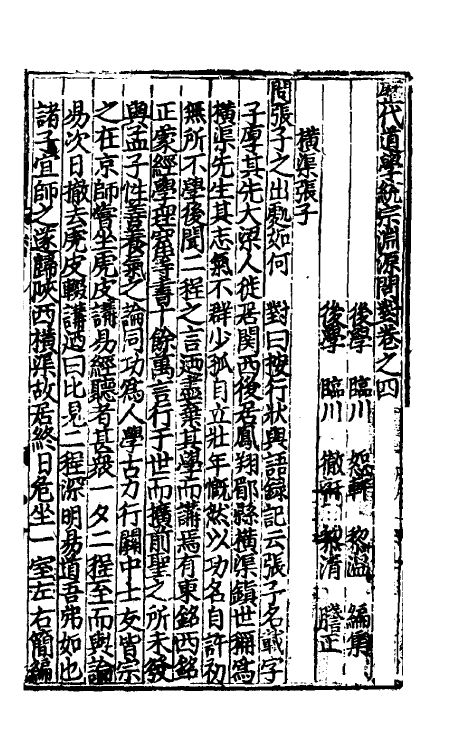 歷代道學統宗淵源問對卷之四
後學 臨川 恕軒 黎溫 編集
後學 臨川 徹齋 黎清 謄正
橫渠張子
問張子之出處如何 對曰按行狀與語錄記云張子名載字
子厚其先大梁人徙居關西後居鳳翔郿縣橫渠鎮世稱爲
橫渠先生其志氣不群少孤自立壯年慨然以功名自許初
無所不學後聞二程之言廼盡棄其學而講焉有東銘西銘
正蒙經學理窟等書十餘萬言行于世而擴前聖之所未發
與孟子性善養氣之論同功爲人學古力行關中士友皆宗
之在京師嘗坐虎皮講易經聽者甚衆一夕二程至而與論
易次日撤去虎皮輟講廼曰比見二程深明易道吾弗如也
諸子宜師之遂歸陝西橫渠故居終日危坐一室左右簡編